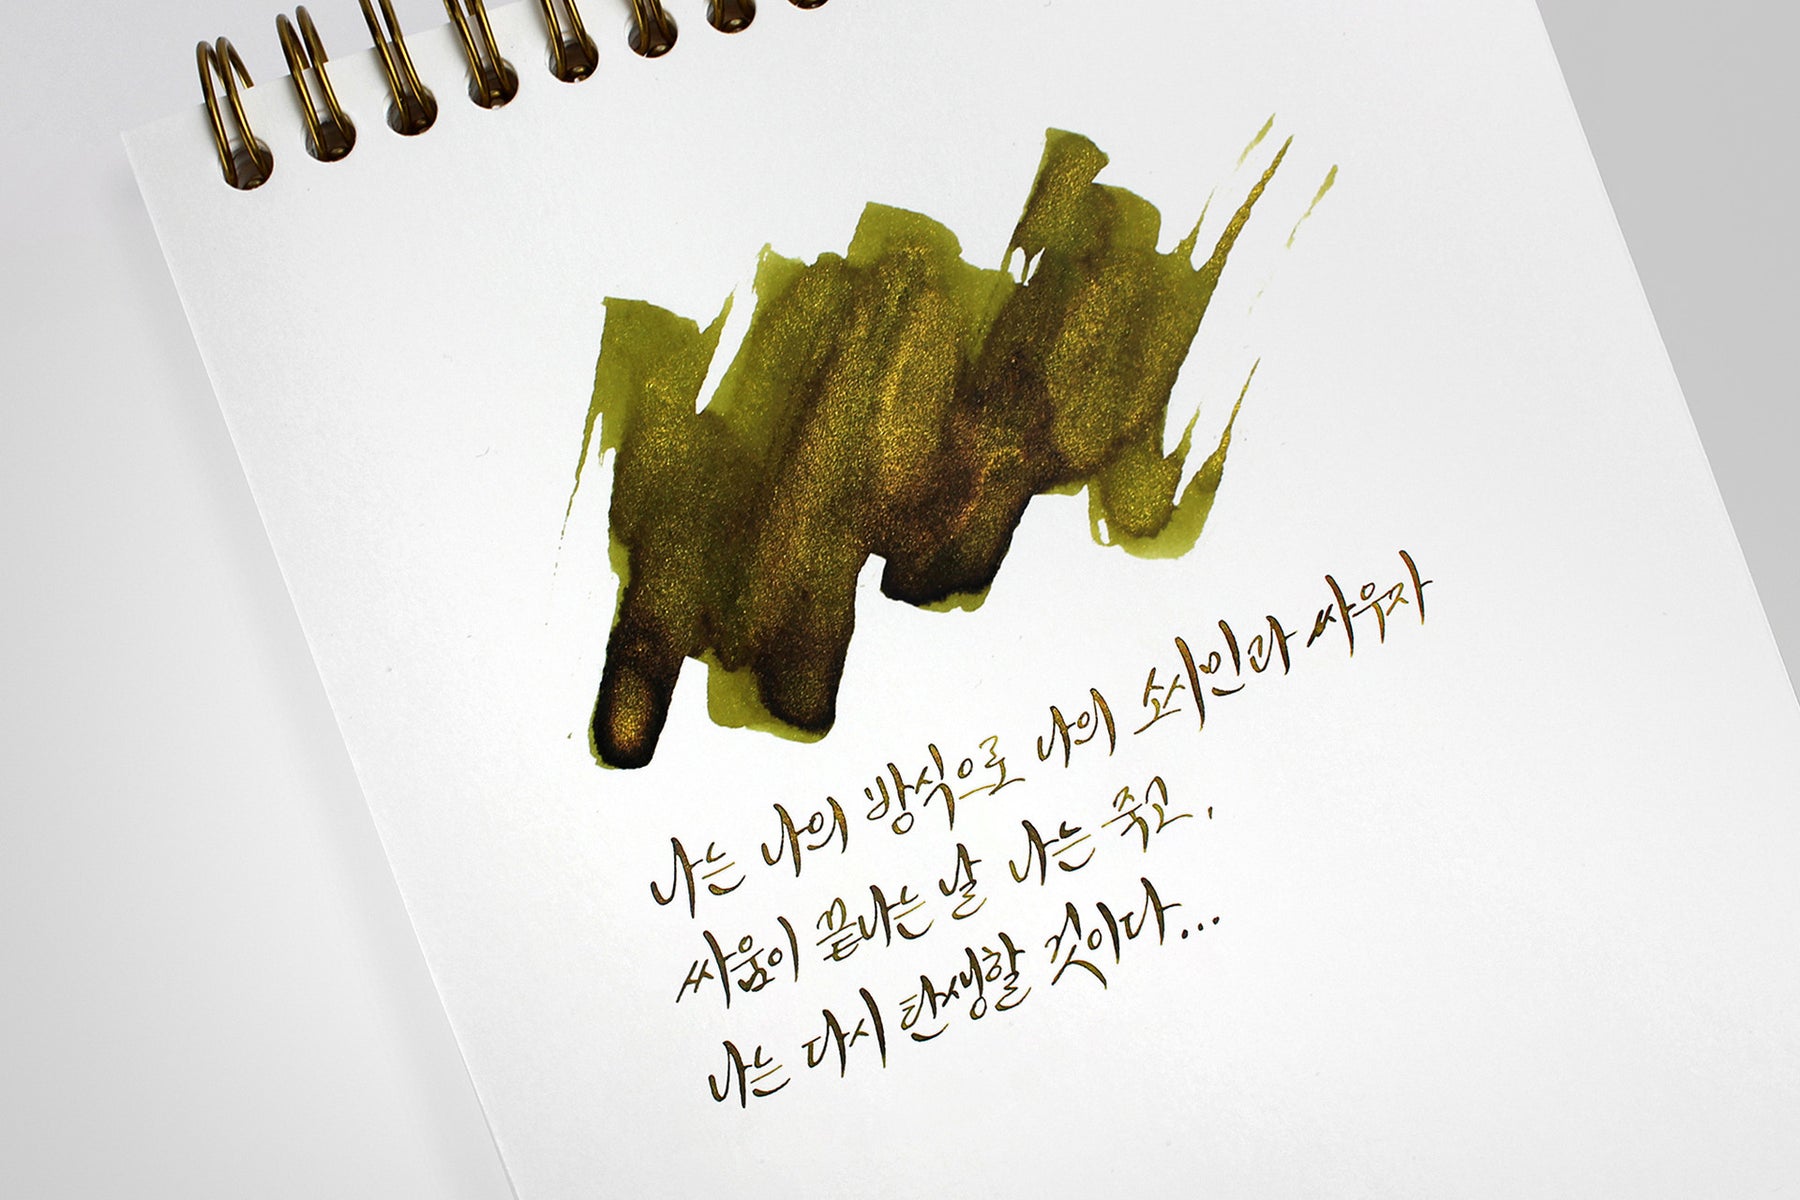 나는 나의 방식으로 나의 소시민과 싸우자
싸움이 끝나는 날 나는 죽고,
나는 다시 탄생할 것이다...